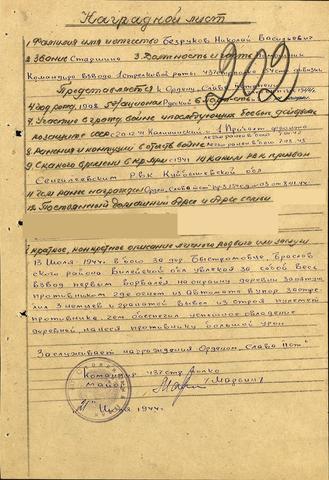 Наградной лист
1 Фамилия имя и отчество Безруков Николай Васильевич
2 Звание Старшина 3. Должность и часть
Командира взвода 1 стрелковой роты 437 стр. дивизии
Представляется к Ордену Слава
4 Год рожд. 1908 5 Национ Русский 6
7. Участие в гражд. войне и последующих боевых действиях
по защите СССР с 20.12.41 Калининский 1 Прибалт фронт
8. Ранения и контузии в отеч. войне
9 С какого времени в кр Арм с 1941 10 каким РВК призван
Сенгилеевским РВК Куйбышевской обл
11 Чем ранее награжден Орден Слава
12. Постоянный домашний адрес и адрес семьи
1 краткое, конкретное описание личного подвига или заслуг
13 Июля 1944г. в бою за дер. Браслав
ского района Вилейской обл увлекая за собой весь
взвод первым ворвался на окраину деревни занятую
противником где огнем из автомата в упор застре
лил 3 немцев и гранатой вывел из строя пулемет
противника, чем обеспечил успешное овладение
деревней, нанеся противнику большой урон
Заслуживает награждения Орденом "Слава
Командир 437 стр. полка
майор /Марвин/
Июля 1944г.
202